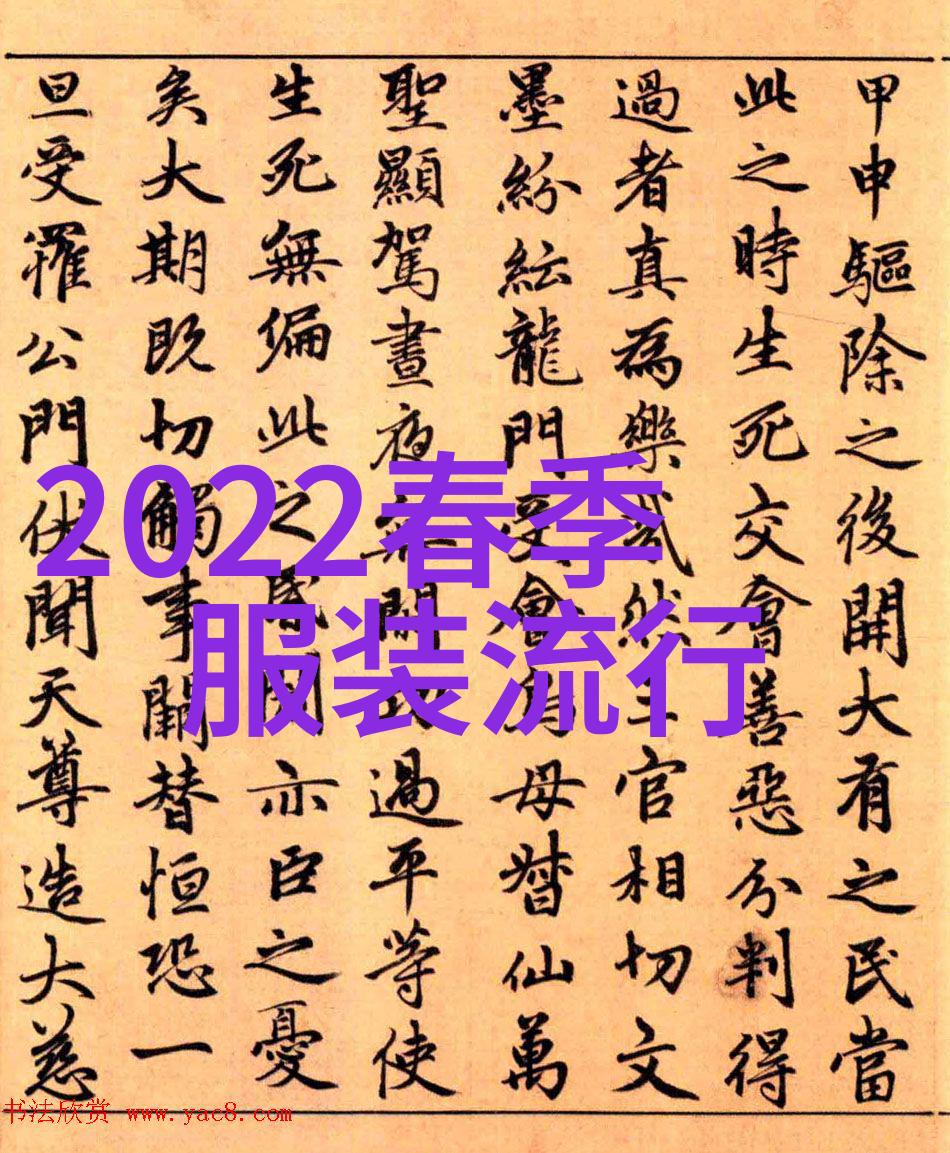 甲申驅除之後開大有之民當
此之時生死交會善惡分判得
過者真為樂哉然三官相切文
墨紛紜龍門受會母督仙萬
聖顯駕晝夜無過平等使
生死無偏此之亦臣之憂
矣大期既切觸事闕替恒恐一
旦受罹公門伏聞天尊造大慈
2022春季
服装流行
书法欣赏 www.yac8.com